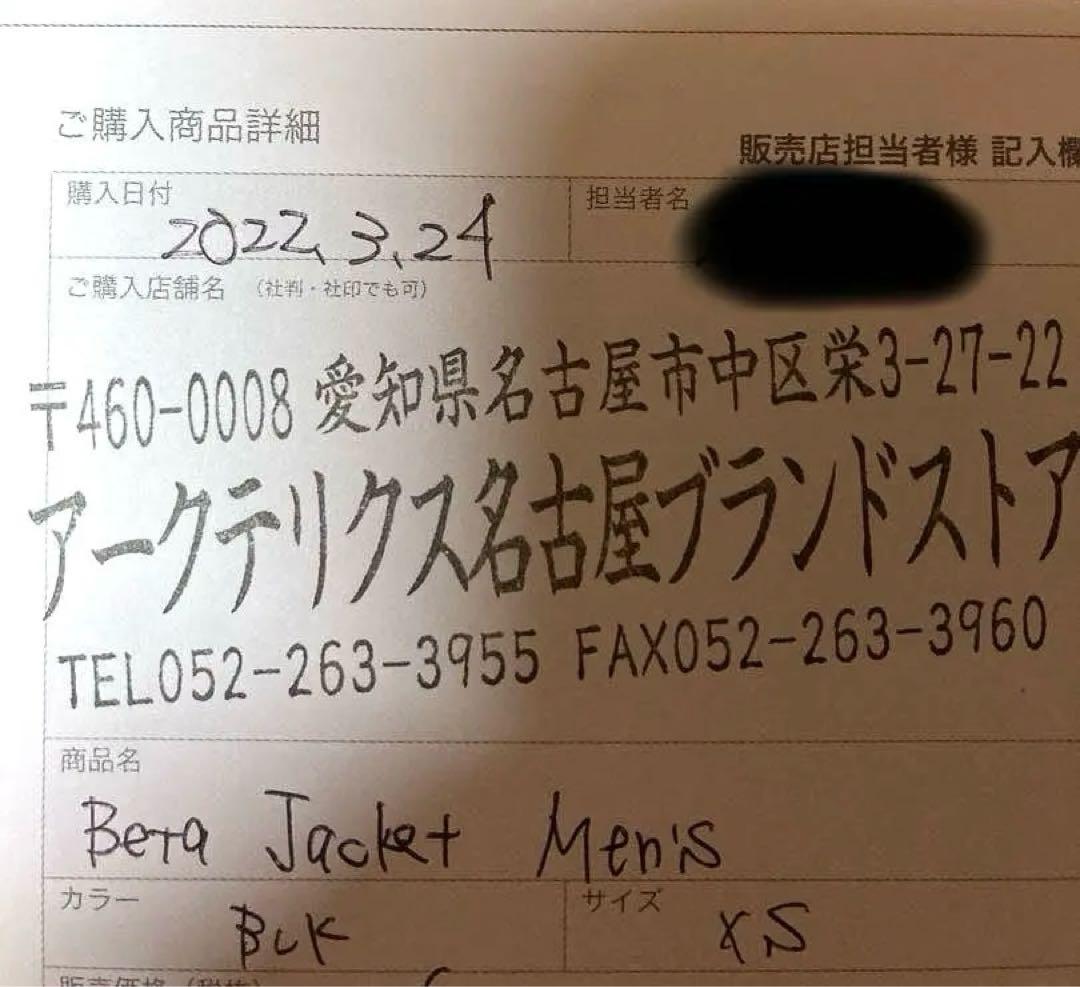 ご購入商品詳細
販売店担当者様 記入欄
購入日付
2022.3.24
担当者名
ご購入店舗名 (社判・社印でも可)
〒460-0008 愛知県名古屋市中区栄3-27-22
アークテリクス名古屋ブランドストア
TEL052-263-3955 FAX052-263-3960
商品名
Beta Jacket Men's
カラー
BLK
サイズ
XS
販売価格(税抜)